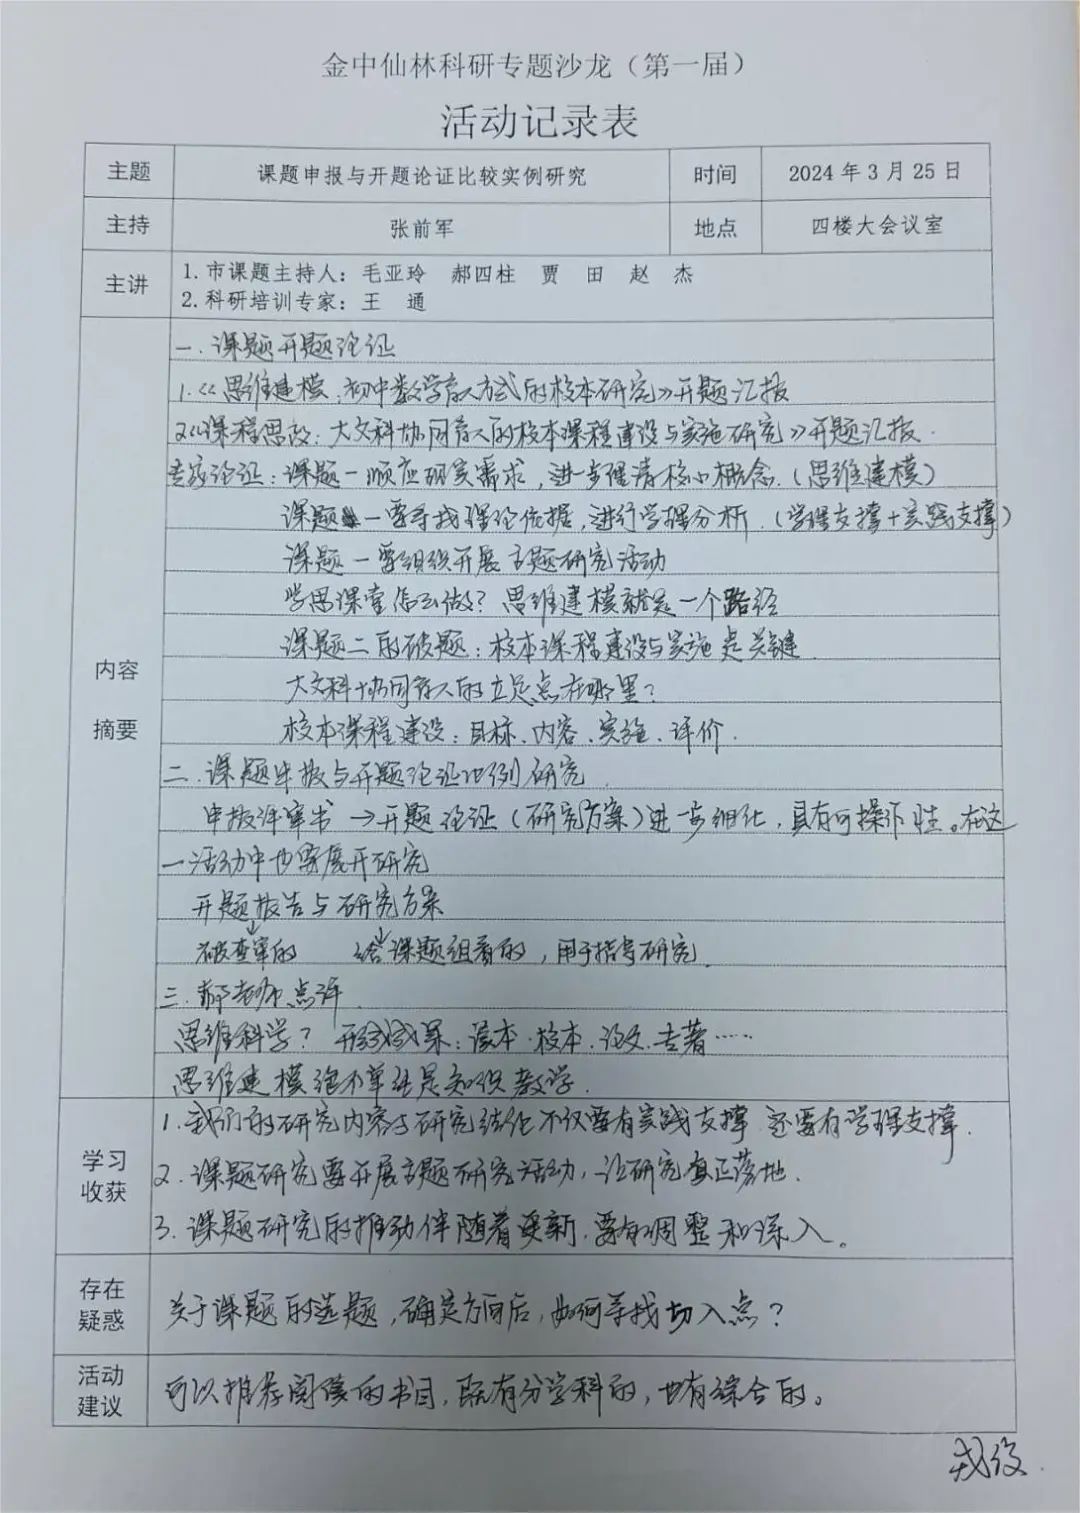 金中仙林科研专题沙龙（第一届）
活动记录表
主题 课题申报与开题论证比较实例研究 时间 2024年3月25日
主持 张前军 地点 四楼大会议室
主讲 1.市课题主持人：毛亚玲 郝四柱 贾 田 赵 杰
2.科研培训专家：王 通
内容
摘要
一.课题开题论证
1.《思维建模：初中数学育人方式的校本研究》开题汇报
2.《课程思政：大文科协同育人的校本课程建设与实施研究》开题汇报.
专家论证：课题一顺应现实需求，进一步理清核心概念.(思维建模)
课题一要寻找理论依据，进行学理分析.(学理支撑+实践支撑)
课题一要组织开展主题研究活动
学思课堂怎么做？思维建模就是一个路径
课题二的破题：校本课程建设与实施是关键.
大文科+协同育人的立足点在哪里？
校本课程建设：目标、内容、实施、评价.
二.课题申报与开题论证比例研究.
申报评审书→开题论证(研究方案)进一步细化，具有可操作性。在这
一活动中也要展开研究
开题报告与研究方案
↓ ↓
被查审的 给课题组看的，用于指导研究.
三.郝老师点评.
思维科学？ 形成成果：读本.校本.论文.专著……
思维建模绝不单纯是知识教学.
学习
收获
1.我们的研究内容与研究结论不仅要有实践支撑 还要有学理支撑.
2.课题研究要开展主题研究活动，让研究真正落地.
3.课题研究的推动伴随着更新，要有调整和深入。
存在
疑惑
关于课题的选题，确定方向后，如何寻找切入点？
活动
建议
可以推荐阅读的书目，既有分学科的，也有综合的。